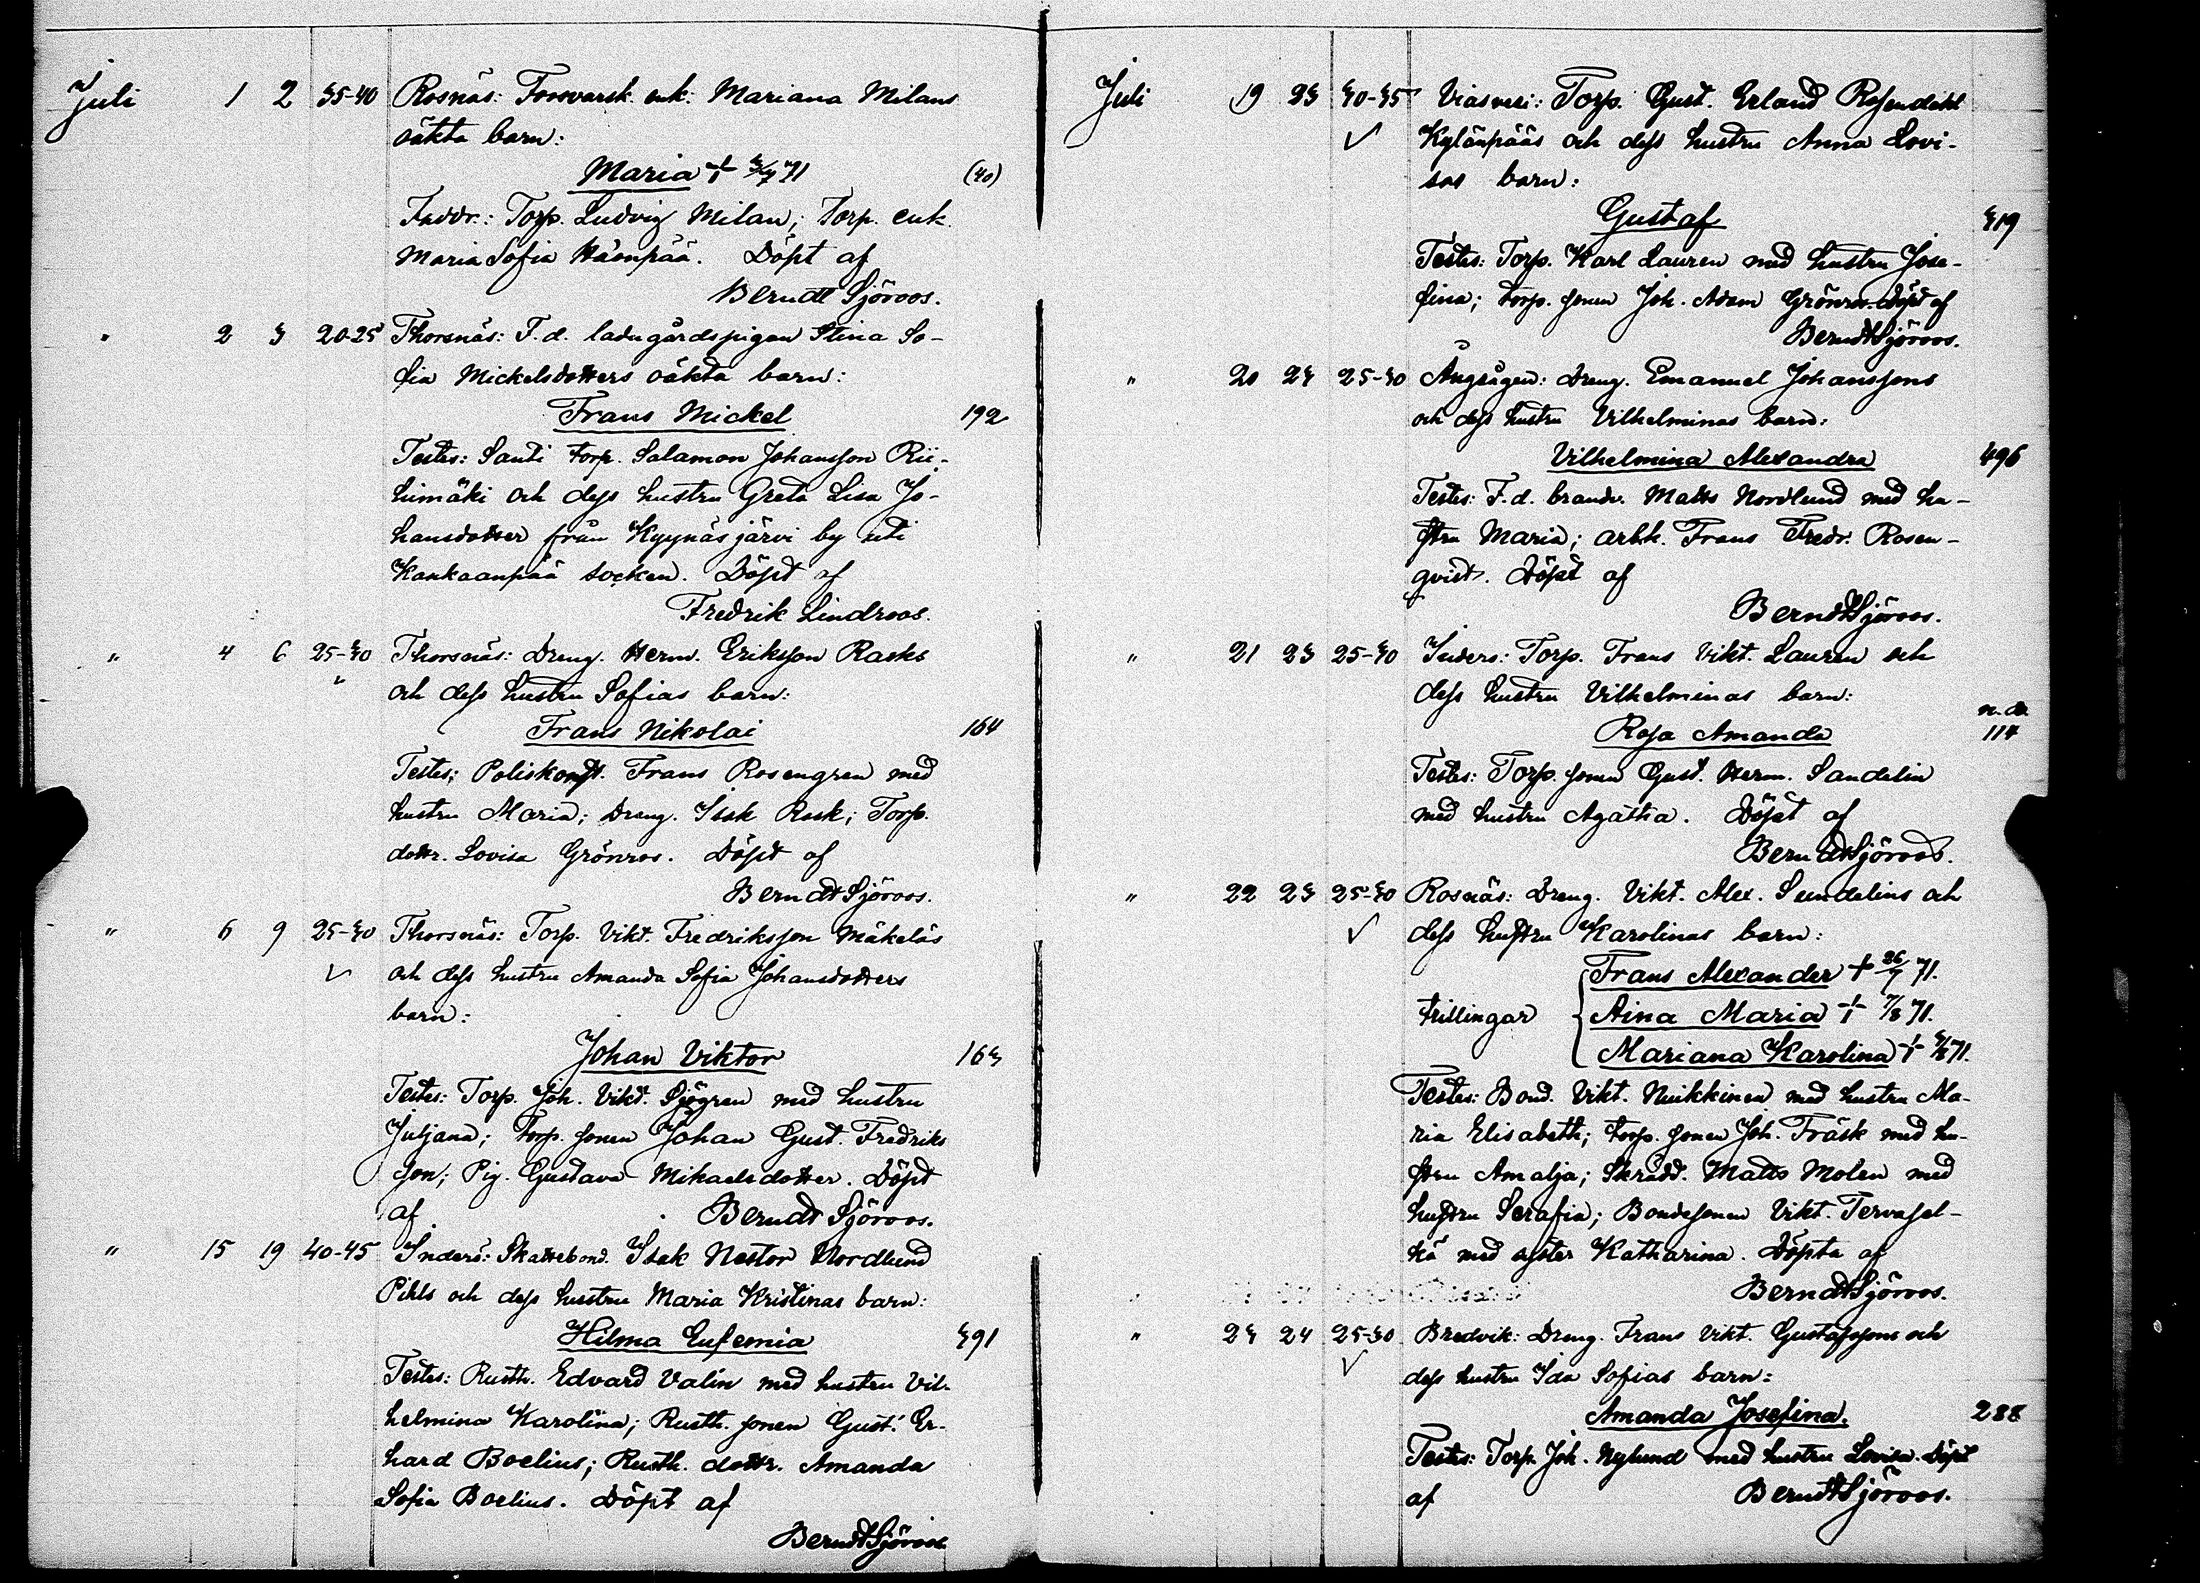 Juli 1 2 35-40 Rosnäs: Försvarsl. enk. Mariana Milans
oäkta barn:
Maria + 3/7 71 (40)
Faddr.: Torp. Ludvig Milan; Torp. enk.
Maria Sofia Haanpää. Döpt af
Berndt Sjöroos.
" 2 3 20-25 Thorsnäs: F. d. ladugårdspigan Stina So-
fia Mickelsdotters oäkta barn:
Frans Mickel 192
Testes: Santi torp. Salamon Johansson Rii-
himäki och dess hustru Greta Lisa Jo-
hansdotter från Kyynäsjärvi by uti
Kankaanpää socken. Döpt af
Fredrik Lindroos.
" 4 6 25-30 Thorsnäs: Dreng. Herm. Eriksson Rasks
" och dess hustru Sofias barn:
Frans Nikolai 164
Testes: Poliskonst. Frans Rosengren med
hustru Maria; Dreng. Isak Rask; Torp.
dottr. Lovisa Grönros. Döpt af
Berndt Sjöroos.
" 6 9 25-30 Thorsnäs: Torp. Vikt. Fredriksson Mäkeläs
✓ och dess hustru Amanda Sofia Johansdotters
barn:
Johan Viktor 163
Testes: Torp. Joh. Vikt. Sjögren med hustru
Juljana; Torp. sonen Johan Gust. Fredriks
son; Pig. Gustava Mikaelsdotter. Döpt
af Berndt Sjöroos.
" 15 19 40-45 Inderö: Skattebond. Isak Nestor Nordlund
Pihls och dess hustru Maria Kristinas barn:
Hilma Eufemia 391
Testes: Rusth. Edvard Valin med hustru Vil-
helmina Karolina; Rusth. sonen Gust. Er-
hard Boelius; Rusth. dottr. Amanda
Sofia Boelius. Döpt af
Berndt Sjöroos
Juli 19 23 30-35 Viasvesi: Torp. Gust. Erland Rosendahl
✓ Kylänpääs och dess hustru Anna Lovi-
sas barn:
Gustaf 319
Testes: Torp. Karl Lauren med hustru Jose-
fina; torp. sonen Joh. Adam Grönros. Döpt af
Berndt Sjöroos.
" 20 23 25-30 Ångsågen: Dreng. Emanuel Johanssons
och dess hustru Vilhelminas barn:
Vilhelmina Alexandra 496
Testes: F. d. brandv. Matts Nordlund med hu-
stru Maria; arbk. Frans Fredr. Rosen-
qvist. Döpt af
Berndt Sjöroos.
" 21 23 25-30 Inderö: Torp. Frans Vikt. Lauren och
dess hustru Vilhelminas barn:
n. d.
Rosa Amanda 114
Testes: Torp. sonen Gust. Herm. Sandelin
med hustru Agatha. Döpt af
Berndt Sjöroos.
" 22 23 25-30 Rosnäs: Dreng. Vikt. Alex. Sundelins och
✓ dess hustru Karolinas barn:
Frans Alexander + 26/7 71.
trillingar Aina Maria + 7/8 71.
Mariana Karolina + 3/8 71.
Testes: Bond. Vikt. Nuikkinen med hustru Ma-
ria Elisabeth; torp. sonen Joh. Träsk med hu-
stru Amalja; Skrädd. Matts Molen med
hustru Serafia; Bondesonen Vikt. Tervasel-
kä med syster Katharina. Döpta af
Berndt Sjöroos.
" 23 24 25-30 Bredvik: Dreng. Frans Vikt. Gustafssons och
✓ dess hustru Ida Sofias barn:
Amanda Josefina. 288
Testes: Torp. Joh. Nylund med hustru Lovisa. Döpt
af Berndt Sjöroos.